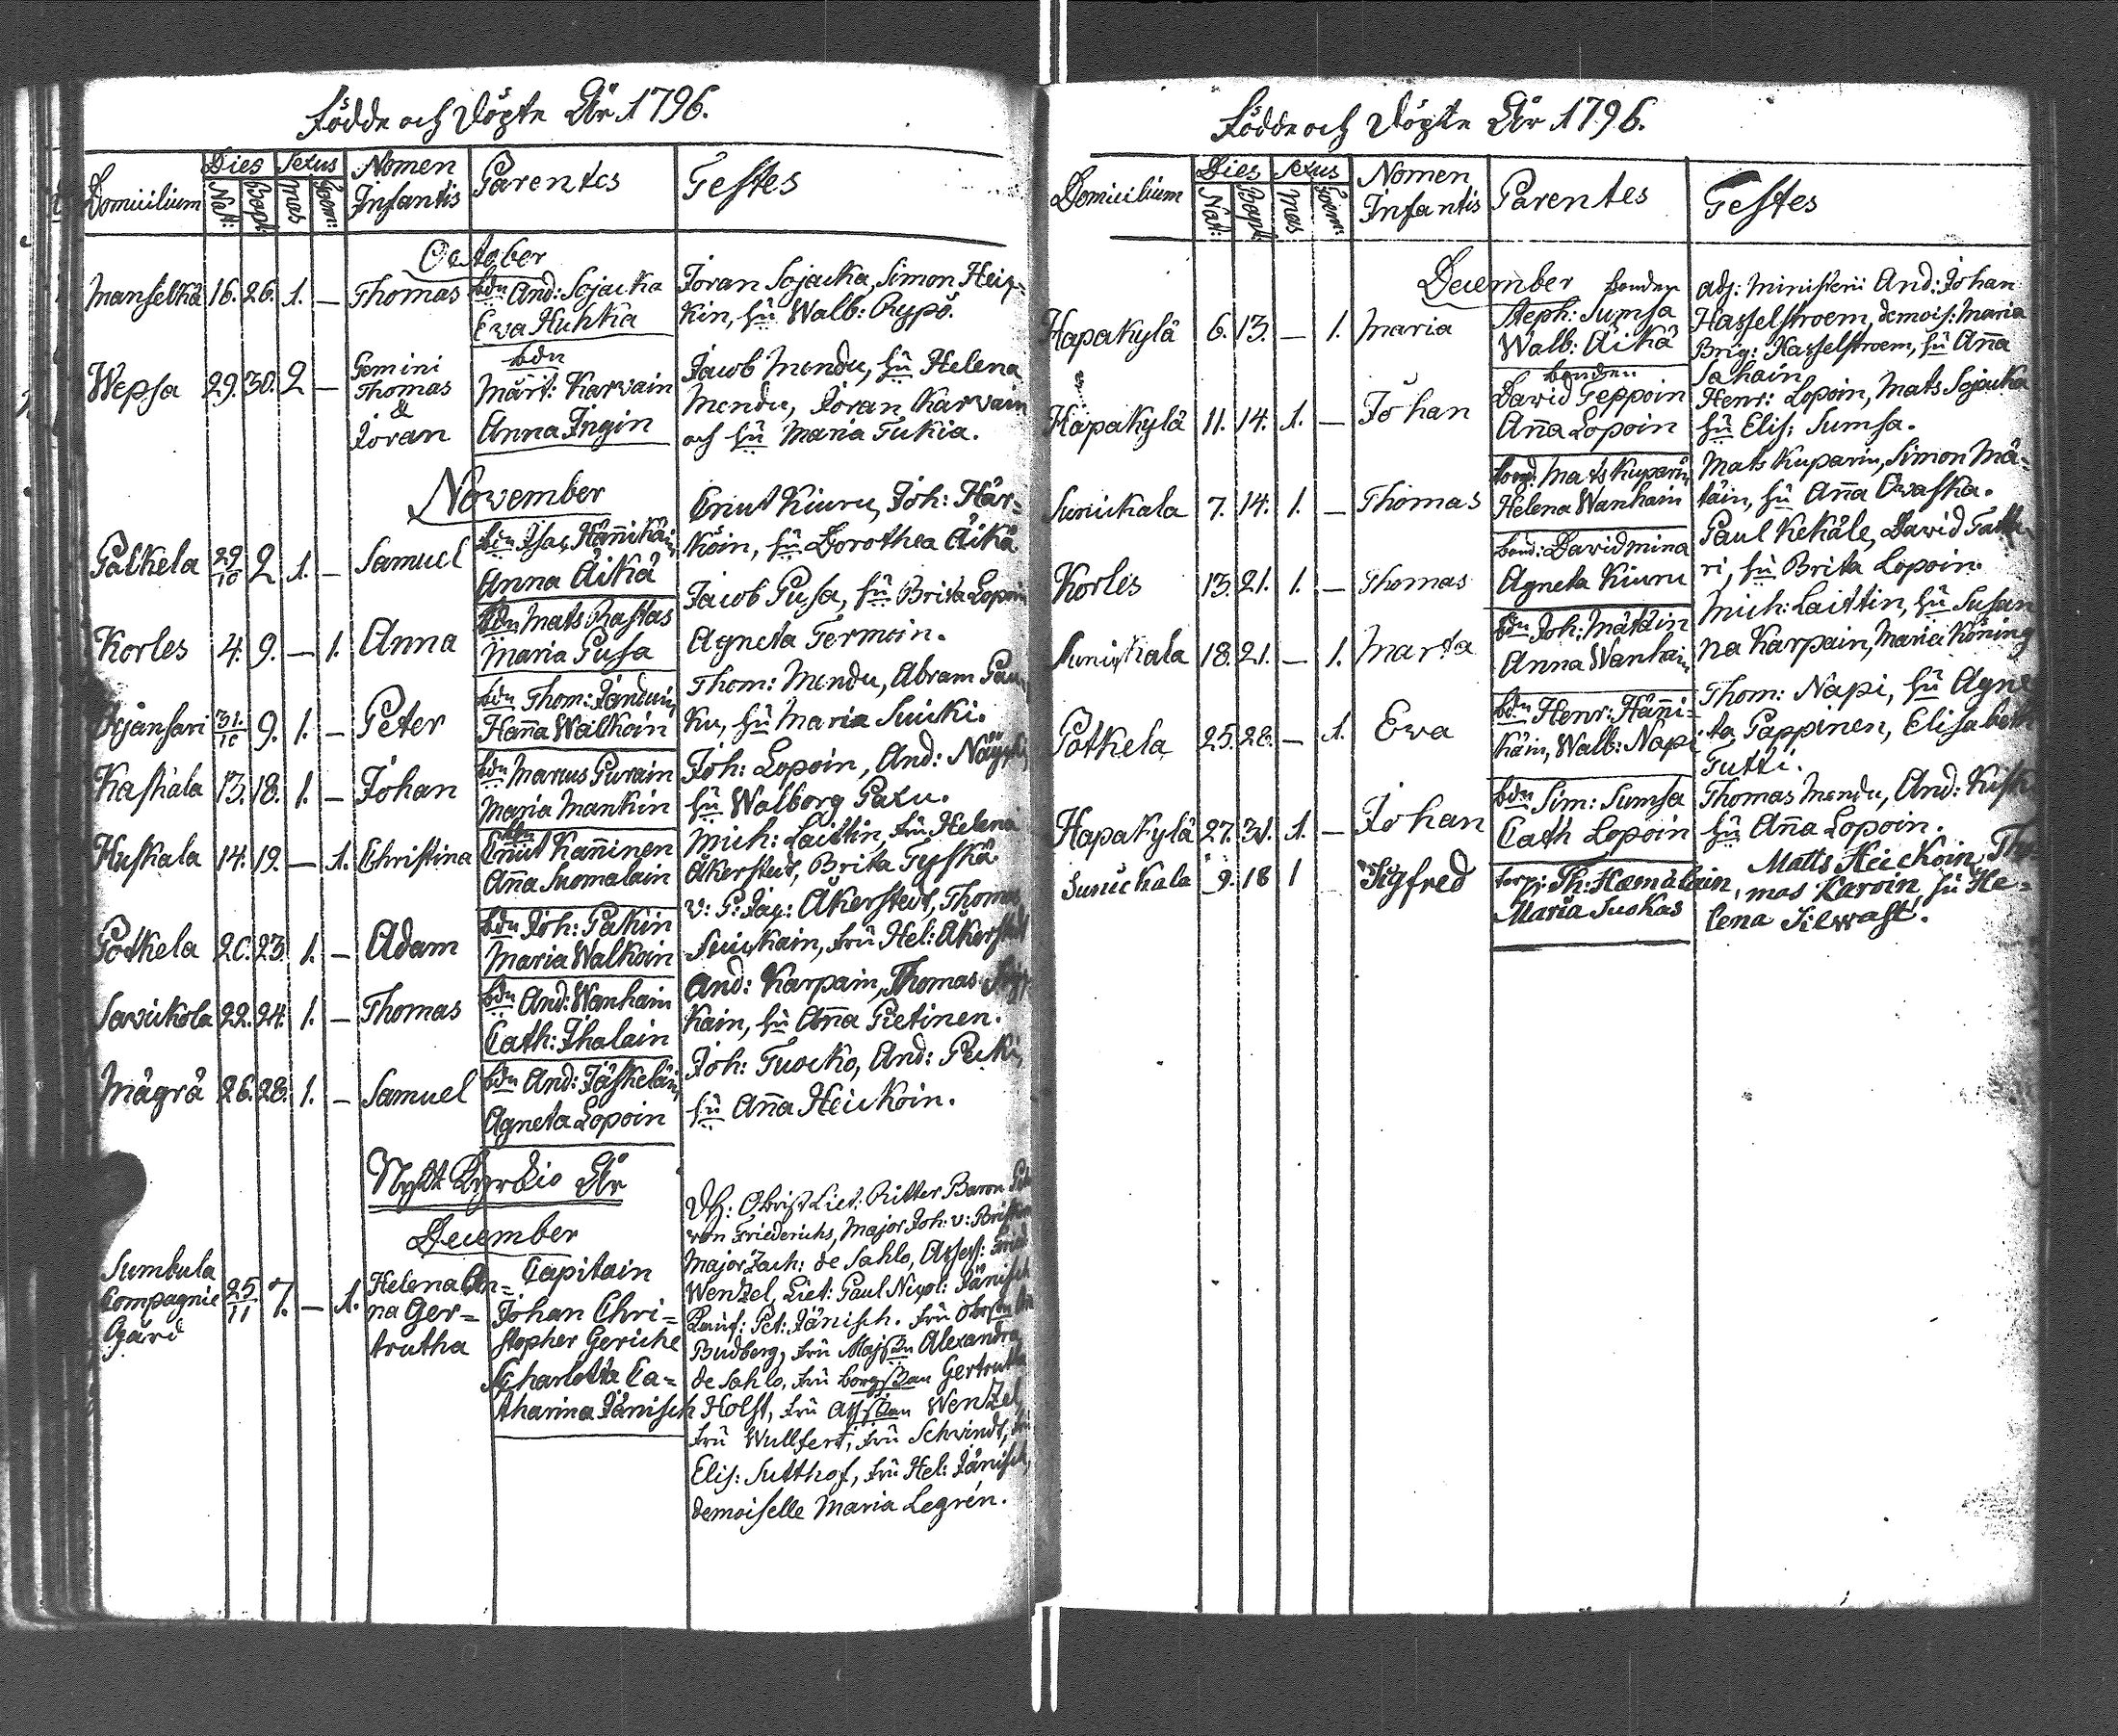 Födde och Döpte År 1796.
Domicilium Dies Sexus Nomen Infantis Parentes Testes
Nat: Bapt: Mas Foem:
October
Manselkä 16. 26. 1. — Thomas bdn And: Sojacka Joran Sojacka, Simon Heip=
Eva Huhka kin, hu Walb: Rypö.
Wepsa 29. 30. 2 — Gemini Thomas & Joran bdn Märt: Karvain Anna Ingin
Jacob Mendu, hu Helena
Mendu, Joran Karvain
och hu Maria Tukia.
November
Palkela 29/10 2 1. — Samuel bdn Isac Hänikäin Anna Äikä
Cnut Kiuru, Joh: Här=
köin, hu Dorothea Äikä
Korles 4. 9. — 1. Anna bdn Mats Rastas Maria Pusa
Jacob Pusa, hu Brita Lopoin
Agneta Termoin.
31/10 9. 1. — Peter bdn Thom: Hanna Walkoin
Thom: Mendu, Abram
ku, hu Maria Suicki.
Kaskala 13. 18. 1. — Johan bdn Marcus Purain Maria Mankin
Joh: Lopoin, And:
hu Walborg Paxu.
Huskala 14. 19. — 1. Christina bdn Cnut Kanninen Anna Suomalain
Mich: Laittin, fru Helena
Åkerstedt, Brita Tyskä
Potkela 20. 23. 1. — Adam bdn Joh: Pakin Maria Walkoin
v: P: Jac: Åkerstedt, Thomas
Suickain, fru Hel: Åkerstedt
Savickola 22. 24. 1. — Thomas bdn And: Wanhain Cath: Ihalain
And: Karpain, Thomas
kain, hu Anna Pietinen.
Mägrä 26. 28. 1. — Samuel bdn And: Jäskeläin Agneta Lopoin
Joh: Tuocko, And: Pecki,
hu Anna Heickoin.
Nytt Kyrkio År
December
Sumbula Compagnie Gård 25/11 7. — 1. Helena An=
na Ger=
trutha
Capitain
Johan Chri=
stopher Geriche
Charlotta Ca=
tharina Jänisch
Obrist Liet: Ritter Baron
von Friederichs, Major Joh: v:
Major Zach: de Sahlo, Assess:
Wenzel, Liet: Paul Nicol: Jänisch
Pet: Jänisch. fru
Budberg, fru Alexandra
de Sahlo, fru Gertrutha
Holst, fru Wenzel,
fru Wullfert, fru Schwindt,
Elis: Sutthof, fru Hel: Jänisch,
demoiselle Maria Legrén.
Födde och Döpte År 1796.
Domicilium Dies Sexus Nomen Infantis Parentes Testes
Nat: Bapt: Mas Foem:
December
Hapakylä 6. 13. — 1. Maria bonden Steph: Sumsa Walb: Äikä
adj: Ministerii And: Johan
Hasselstroem, demois: Maria
Brig: Hasselstroem, hu Anna
Sahain
Hapakylä 11. 14. 1. — Johan bonden David Teppoin Anna Lopoin
Henr: Lopoin, Mats Sojacka
hu Elis: Sumsa.
Sunickala 7. 14. 1. — Thomas bond: Mats Kuparin Helena Wanhain
Mats Kuparin, Simon Mä=
täin, hu Anna Avaska.
Korles 13. 21. 1. — Thomas bond: David Mina Agneta Kiuru
Paul Kekäle, David Tatt
ri, hu Brita Lopoin.
Sunickala 18. 21. — 1. Marta bdn Joh: Mätäin Anna Wanhain
Mich: Laittin, hu Susan
na Karpain, Maria Köning
Potkela 25. 28. — 1. Eva bdn Henr: Hänni=
käin, Walb: Napi
Thom: Näpi, hu Agne
ta Pappinen, Elisabeth
Tutti.
Hapakylä 27. 31. 1. — Johan bdn Sim: Sumsa Cath Lopoin
Thomas Mendu, And:
hu Anna Lopoin.
Sunickala 9. 18 1 Sigfred torp: Th: Hämäläin, Maria Suokas
Matts Heickoin Tho
mas Karoin hu He=
lena Silwast.